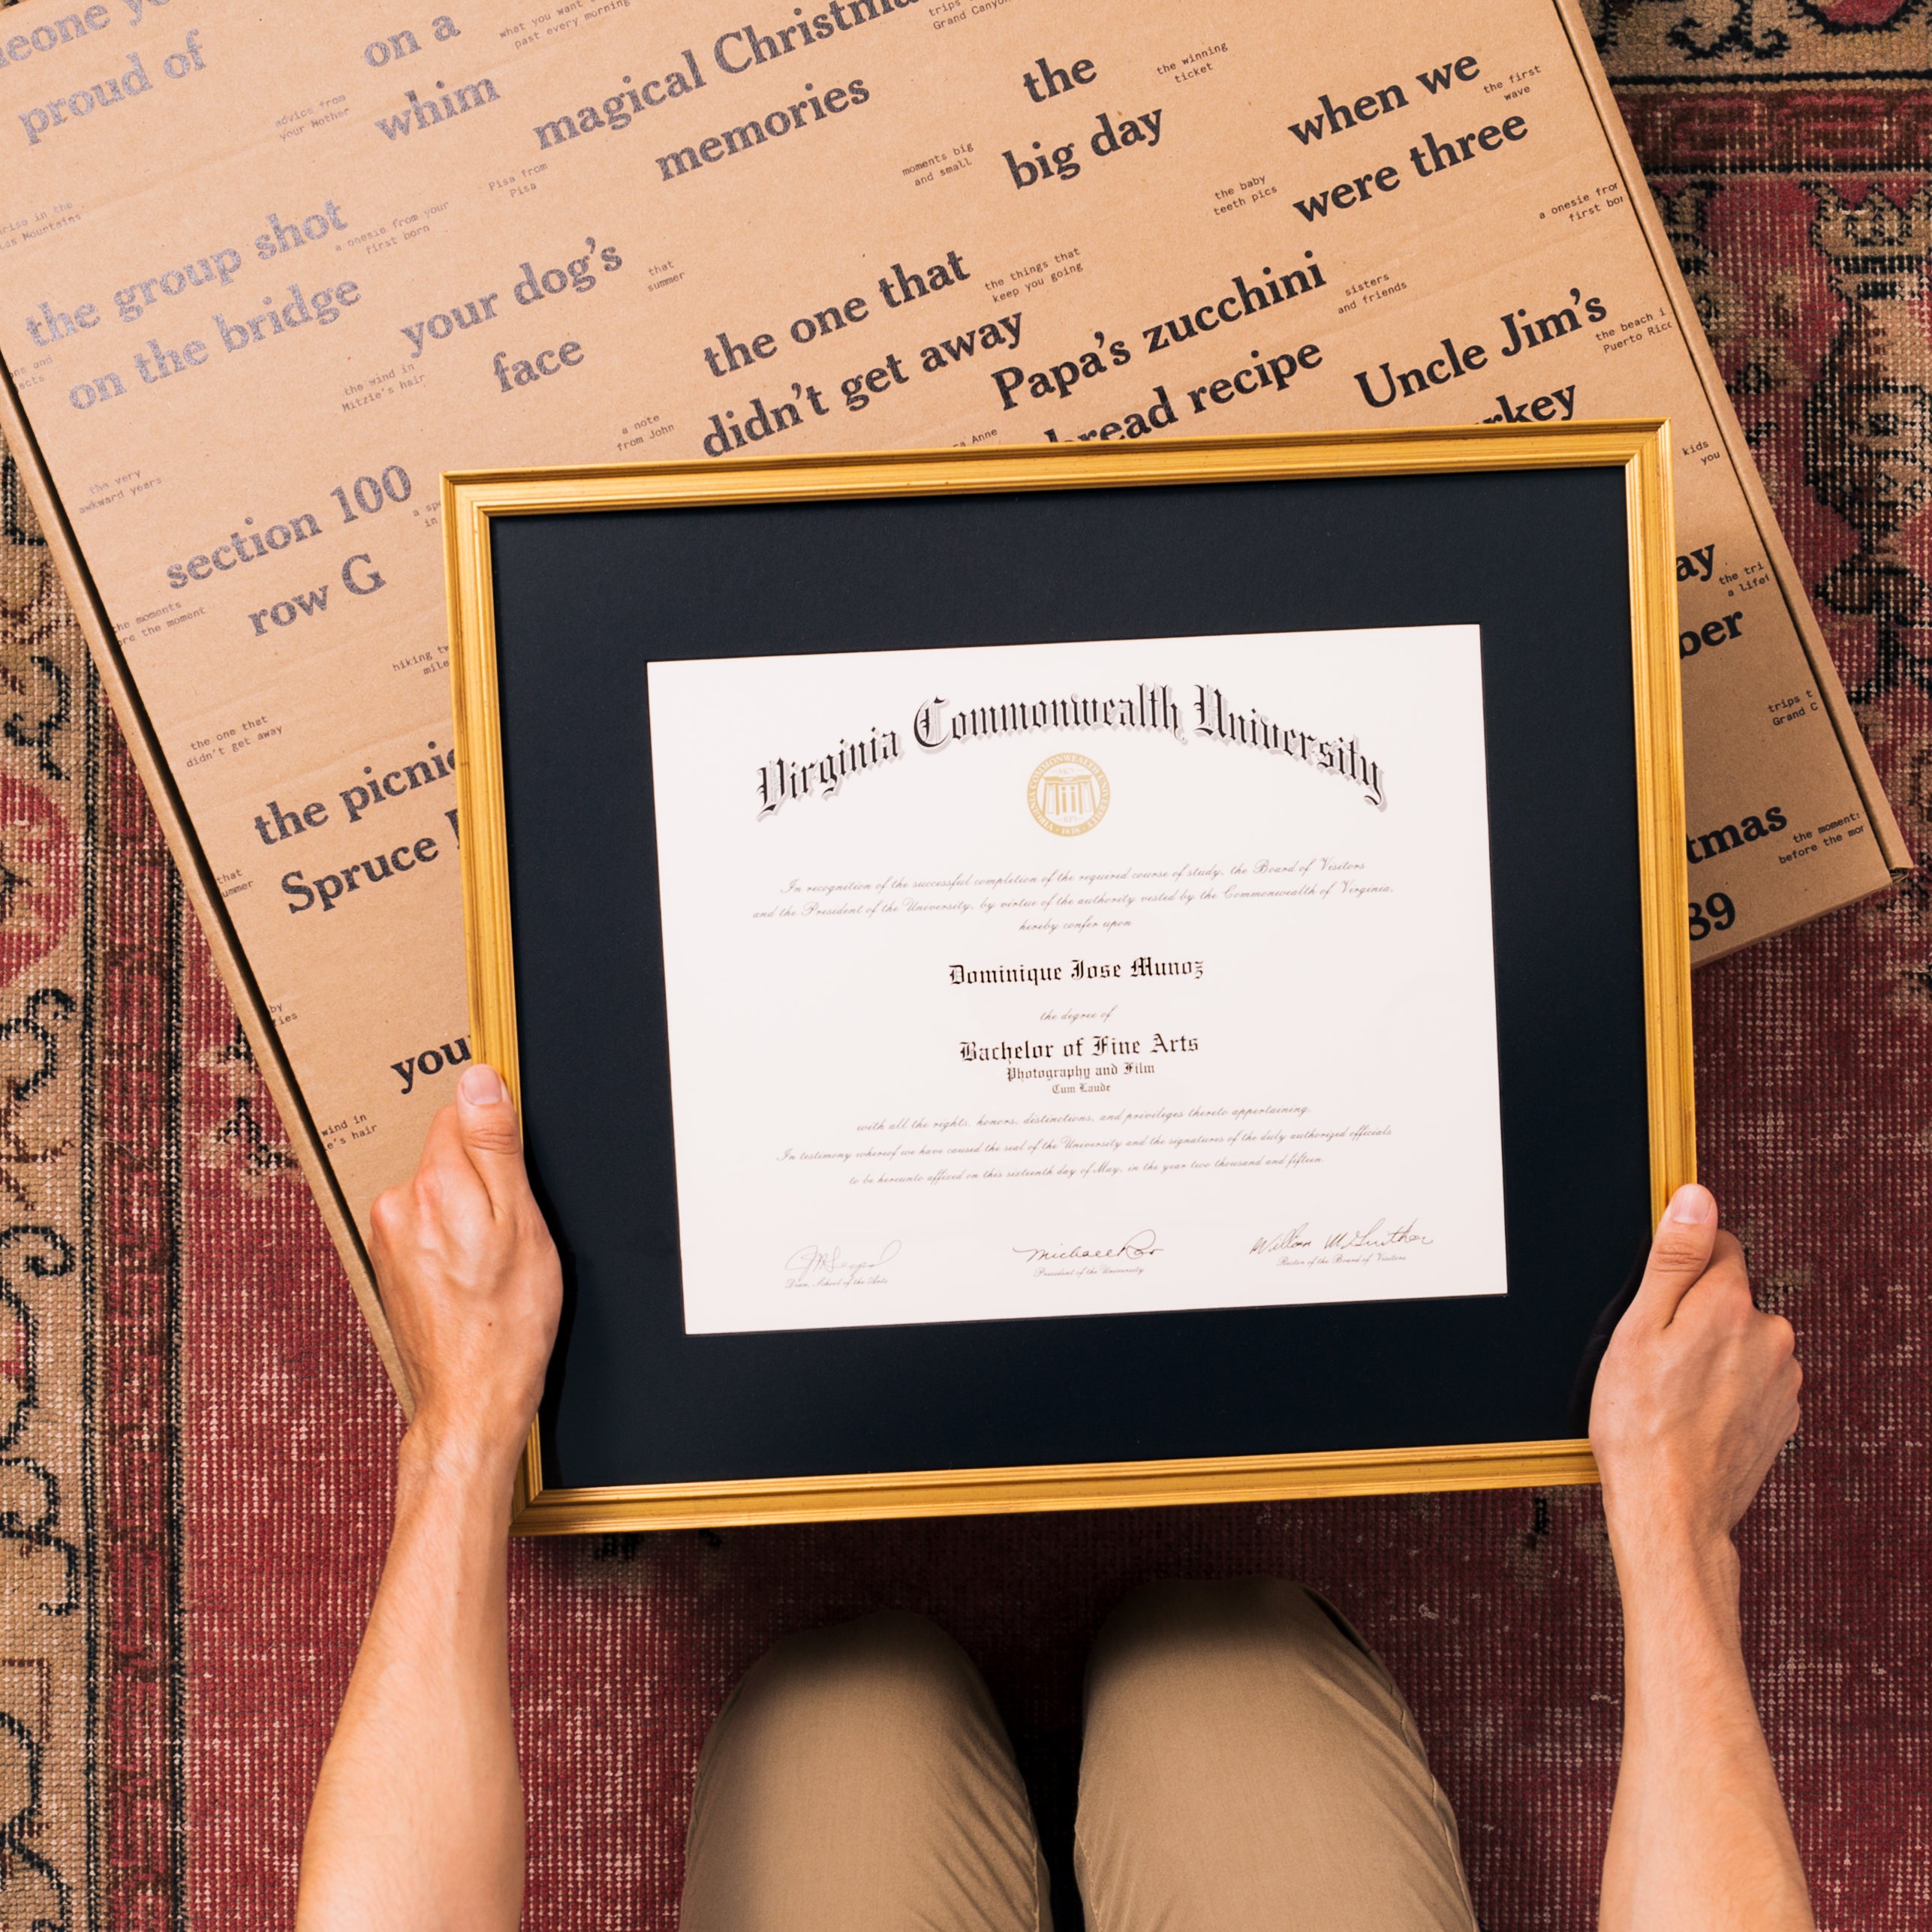 proud of
on a
whim
what you want
past every morning
advice from
your Mother
magical
memories
Grand Canyon
the
big day
the winning
ticket
when we
were three
the first
wave
Pisa from
Pisa
moments big
and small
the baby
teeth pics
a onesie
the group shot
on the bridge
a onesie from your
first born
your dog's
face
that
summer
the one that
didn't get away
the things that
keep you going
Papa's zucchini
bread recipe
sisters
and friends
Uncle Jim's
the beach
Puerto
the wind in
Mitzie's hair
a note
from John
Anne
kids
you
the very
awkward years
section 100
row G
the moments
the moment
hiking
the one that
didn't get away
the picnic
Spruce
that
wind in
hair
the
trips
Grand
the
before the
89
Virginia Commonwealth University
In recognition of the successful completion of the required course of study, the Board of Visitors
and the President of the University, by virtue of the authority vested by the Commonwealth of Virginia,
hereby confer upon
Dominique Jose Munoz
the degree of
Bachelor of Fine Arts
Photography and Film
Cum Laude
with all the rights, honors, distinctions, and privileges thereto appertaining.
In testimony whereof we have caused the seal of the University and the signatures of the duly authorized officials
to be hereunto affixed on this sixteenth day of May, in the year two thousand and fifteen.
Dean, School of the Arts
President of the University
Rector of the Board of Visitors